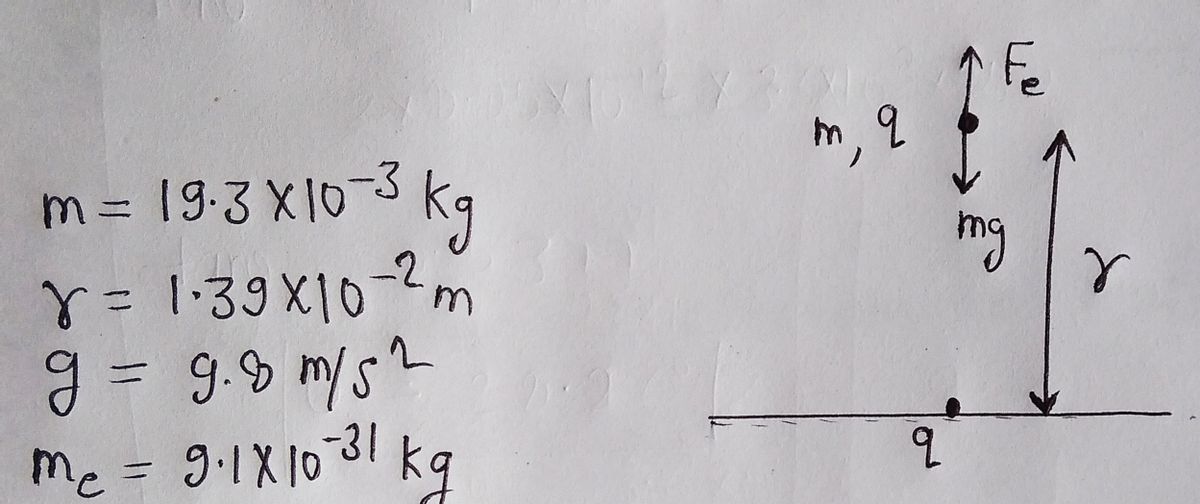 m = 19.3 X 10⁻³ kg
r = 1.39 X 10⁻² m
g = 9.8 m/s²
mₑ = 9.1 X 10⁻³¹ kg
Fₑ
m, q
mg
r
q